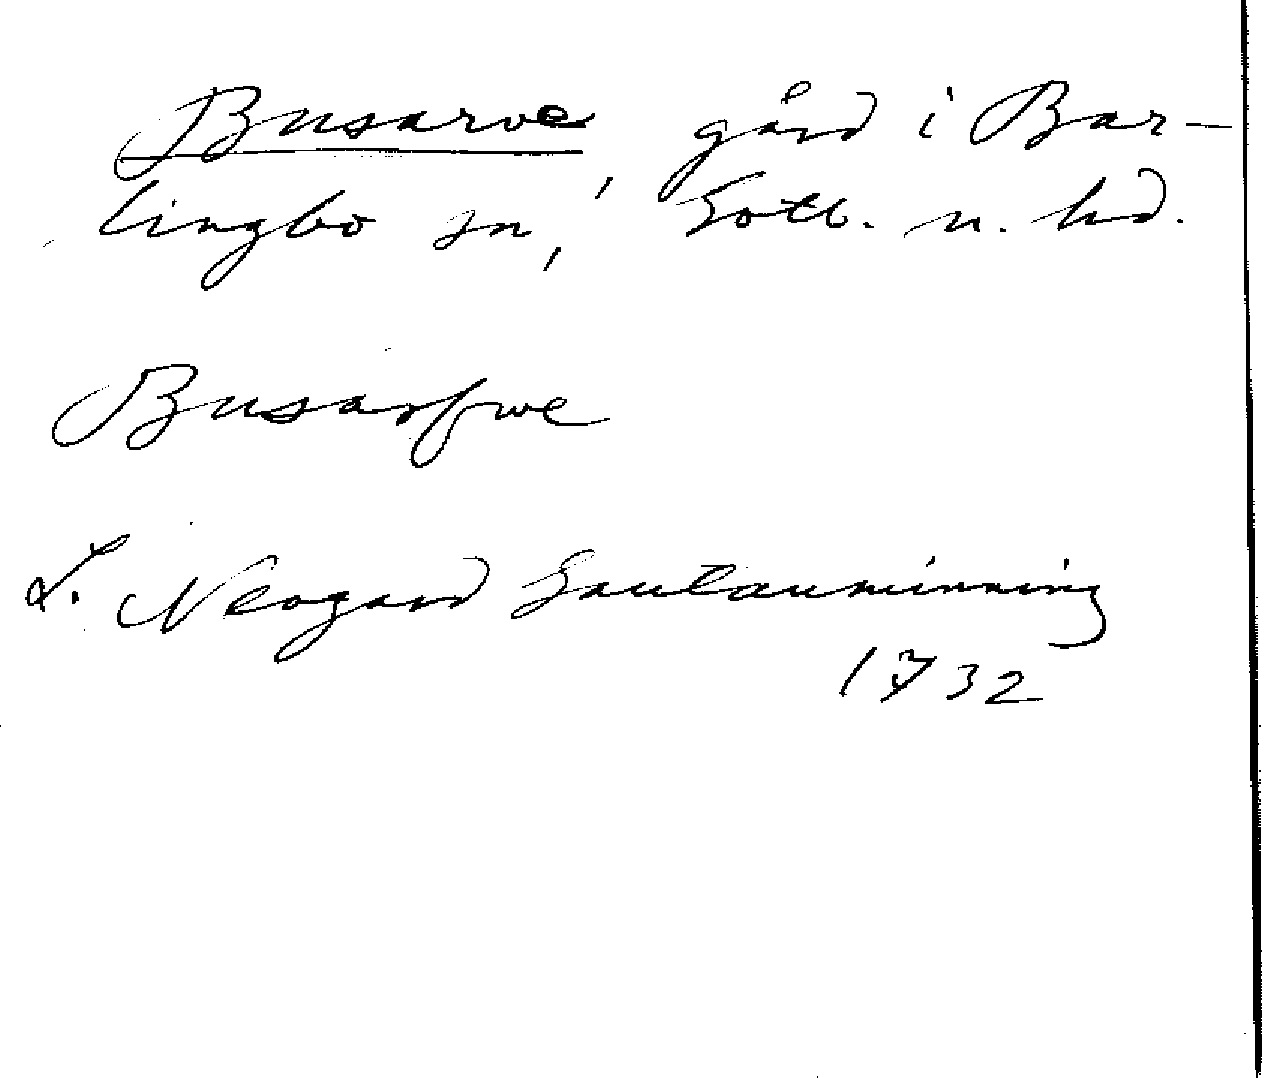 Busarve, gård i Bar-
lingbo sn, Gotl. n. hd.
Busarfwe
L. Neogard Gautauminning
1732